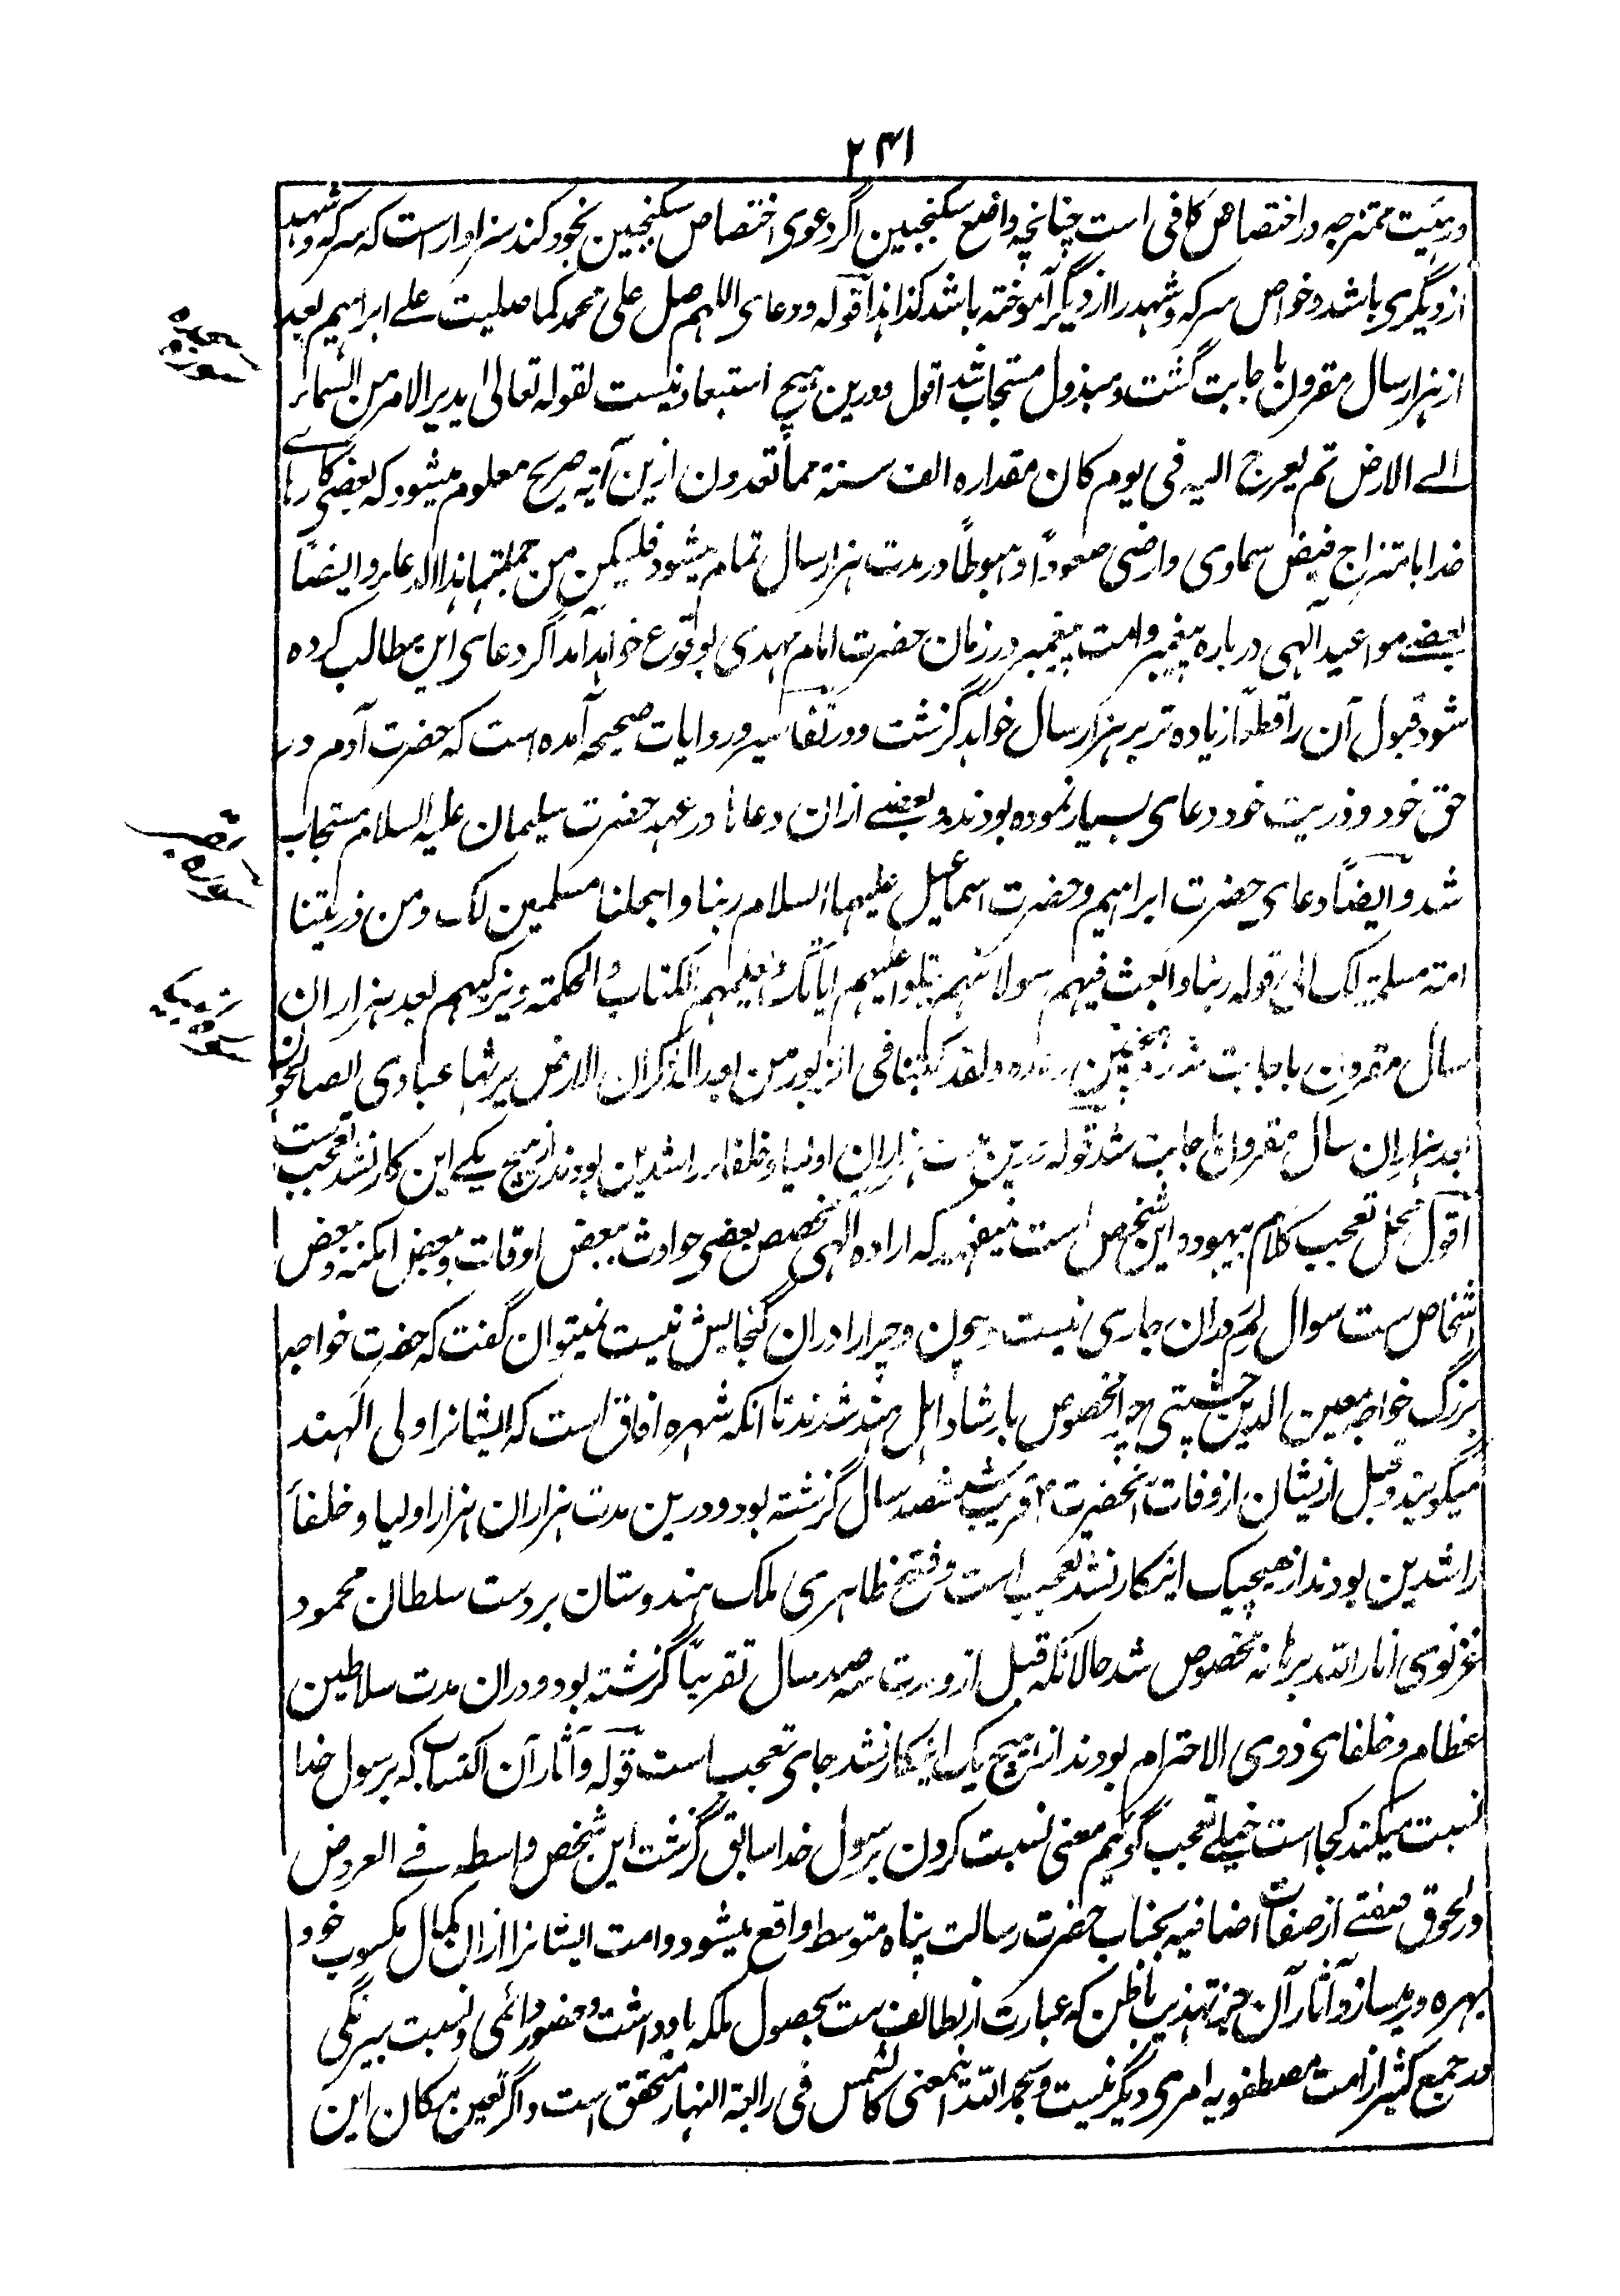 ۲۴۱
در هیئت ممتزجه در اختصاص کافی است چنانچه واضع سکنجبین اگر دعوی اختصاص سکنجبین بخود کند سزاوار است که سرکه و شهد
از دیگری باشد و خواص سرکه و شهد را از دیگر آموخته باشد کذا هذا قوله و دعای اللهم صل علی محمد کما صلیت علے ابراهیم بعد
از هزار سال مقرون باجابت گشت و مبذول مستجاب شد اقول و درین هیچ استبعاد نیست لقوله تعالی یدبر الامر من السماء
الے الارض ثم یعرج الیه فی یوم کان مقداره الف سنة مما تعدون ازین آیه صریح معلوم میشود که بعضی کارهای
خدا بامتزاج فیض سماوی و ارضی صعوداً و هبوطاً در مدت هزار سال تمام میشود فلیکن من جملتها هذا الدعاء و ایضاً
بعضے مواعید الٓهی درباره پیغمبر و امت پیغمبر در زمان حضرت امام مهدی بوقوع خواهد آمد اگر دعای این مطالب کرده
شود قبول آن را قطعاً زیاده تر بر هزار سال خواهد گزشت و در تفاسیر و روایات صحیحه آمده است که حضرت آدم در
حق خود و ذریت خود دعای بسیار نموده بودند و بعضے ازان دعاها در عهد حضرت سلیمان علیه السلام مستجاب
شد و ایضاً دعای حضرت ابراهیم و حضرت اسماعیل علیهما السلام ربنا و اجعلنا مسلمین لک و من ذریتنا
امة مسلمة لک الی قوله ربنا و ابعث فیهم رسولا منهم یتلو علیهم آیاتک و یعلمهم الکتاب و الحکمة و یزکیهم بعد هزاران
سال مقرون باجابت شد و همچنین وعده و لقد کتبنا فی الزبور من بعد الذکر ان الارض یرثها عبادی الصالحون
بعد هزاران سال مقرون باجابت شد قوله درین مدت هزاران اولیا و خلفاء راشدین بودند از هیچ یکے این کار نشد تعجب ست
اقول محل تعجب کلام بیهوده این شخص است نمیفهمد که اراده الٓهی مخصص بعضی حوادث ببعض اوقات و ببعض امکنه و بعض
اشخاص ست سوال لِمَ دران جاری نیست و چون و چرا را دران گنجایش نیست نمیتوان گفت که حضرت خواجه
بزرگ خواجه معین الدین چشتی چرا مخصوص بارشاد اهل هند شدند تا آنکه شهره آفاق است که ایشانرا ولی الهند
میگویند و قبل از ایشان از وفات آنحضرت ۴ قریب ششصد سال گزشته بود و درین مدت هزاران هزار اولیا و خلفاء
راشدین بودند از هیچیک اینکار نشد تعجب است و فتح ظاهری ملک هندوستان بر دست سلطان محمود
غزنوی انار الله برهانه مخصوص شد حالانکه قبل از و مدت سه صد سال تقریباً گزشته بود و دران مدت سلاطین
عظام و خلفای ذوی الاحترام بودند از هیچ یک اینکار نشد جای تعجب است قوله و آثار آن اکتساب که برسول خدا
نسبت میکند کجا است خیلے تعجب گوئیم معنی نسبت کردن برسول خدا سابق گزشت این شخص واسطه فے العروض
در لحوق صفتے از صفات اضافیه بجناب حضرت رسالت پناه متوسط واقع میشود و امت ایشانرا ازان کمال مکسوب خود
بهره ور میسازد و آثار آن جز تهذیب باطن که عبارت از لطائف ست بحصول ملکه یادداشت و حضور دائمی و نسبت بیرنگی
در جمع کثیر از امت مصطفویه امری دیگر نیست و بحمد الله اینمعنی کالشمس فی رابعة النهار متحقق است و اگر تعین مکان این
سجده
سوره
بقره
سوره